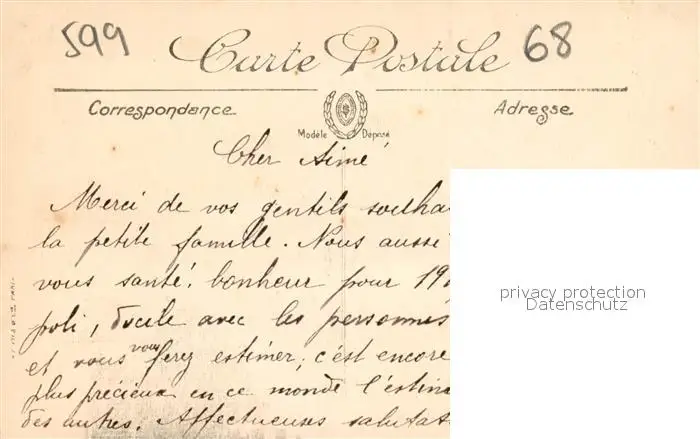 599 Carte Postale 68
Correspondance Adresse
Modèle Déposé
Cher Aimé
Merci de vos gentils souha
la petite famille. Nous aussi
vous santé, bonheur pour 19
poli, docile avec les personnes
et vous vous ferez estimer; c'est encore
plus précieux en ce monde l'estim
des autres. Affectueuses salutat
privacy protection
Datenschutz